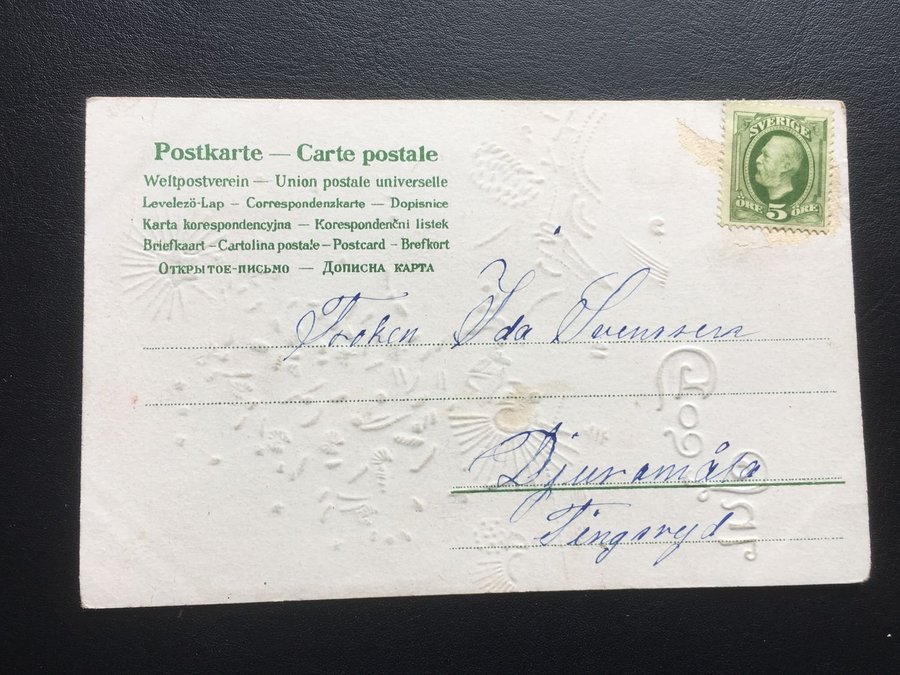 Postkarte — Carte postale
Weltpostverein — Union postale universelle
Levelezö-Lap – Correspondenzkarte – Dopisnice
Karta korespondencyjna — Korespondenčni listek
Briefkaart – Cartolina postale – Postcard – Brefkort
Открытое-письмо — Дописна карта
SVERIGE
ÖRE 5 ÖRE
Fröken Ida Svensson
Djuramåla
Tingsryd
God Jul